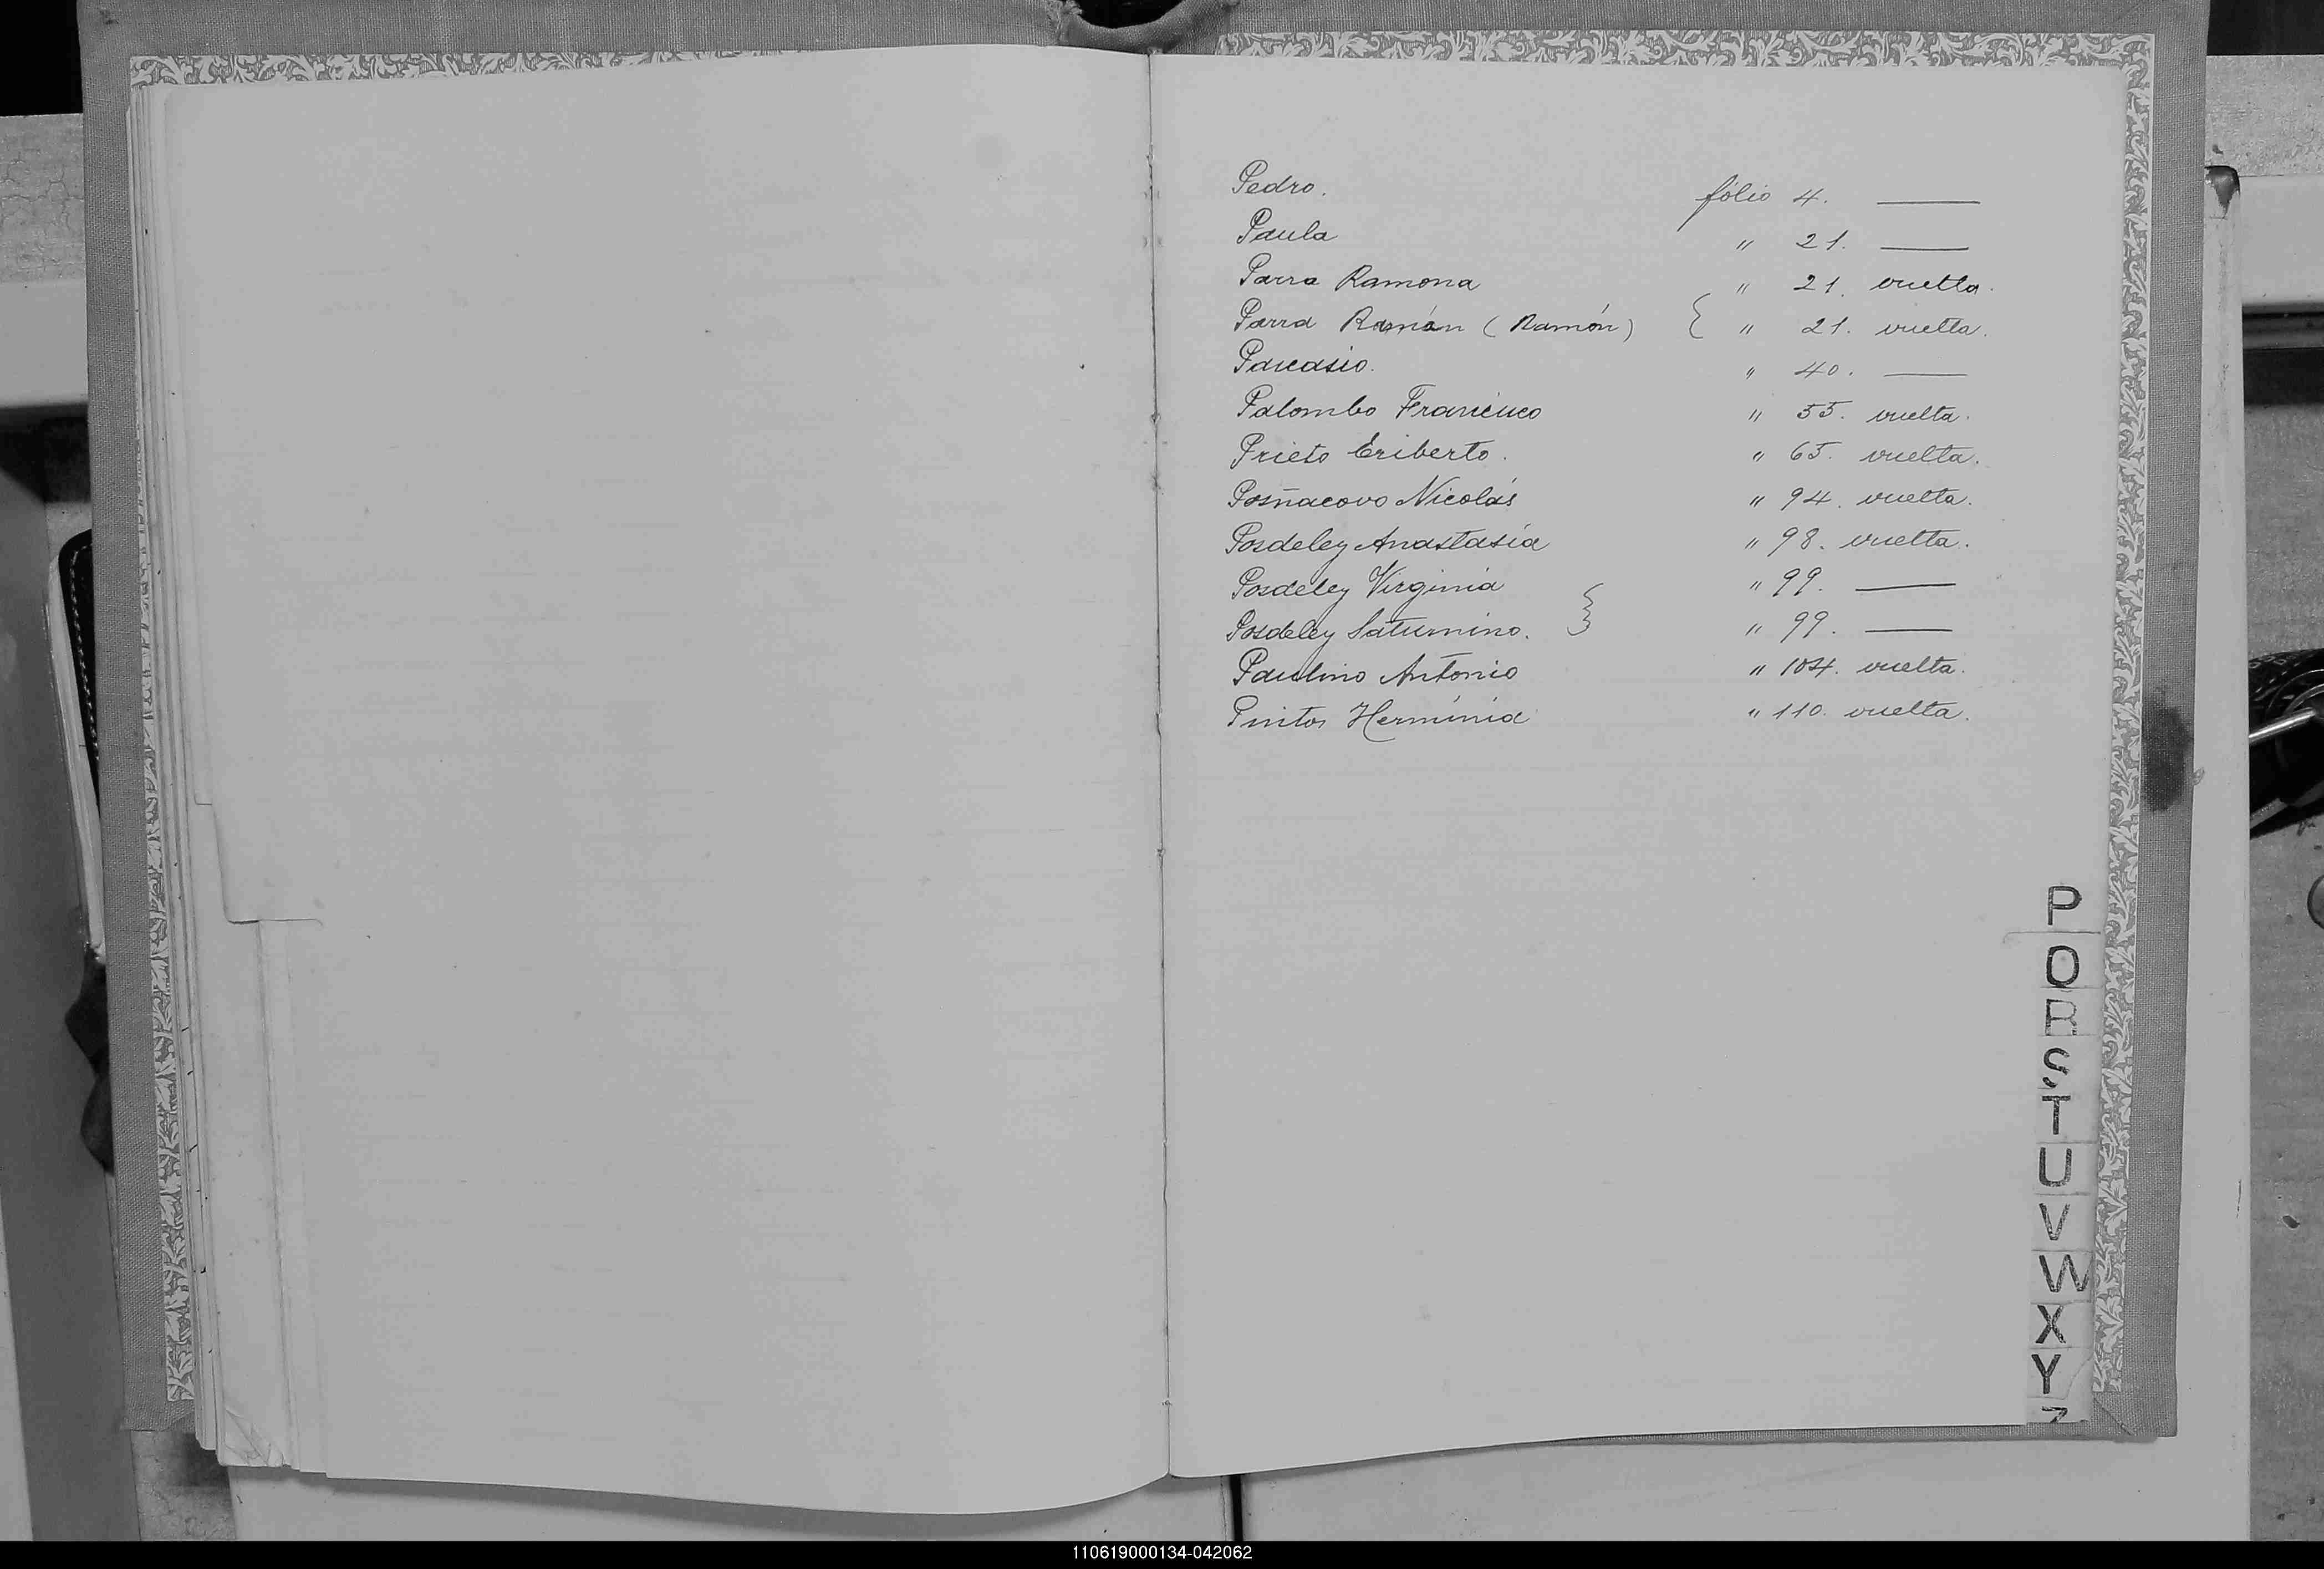 Pedro. fólio 4. ——
Paula " 21. ——
Parra Ramona " 21. vuelta.
Parra Ramón (Ramón) { " 21. vuelta.
Pascasio. " 40. ——
Palombo Francisco " 55. vuelta.
Prieto Eriberto. " 65. vuelta.
Nicolás " 94. vuelta.
Posdeley Anastasia " 98. vuelta.
Posdeley Virginia " 99. ——
Posdeley Saturnino. } " 99. ——
Paulino Antonio " 104. vuelta.
Pintos Herminia " 110. vuelta.
P
Q
R
S
T
U
V
W
X
Y
Z
110619000134-042062